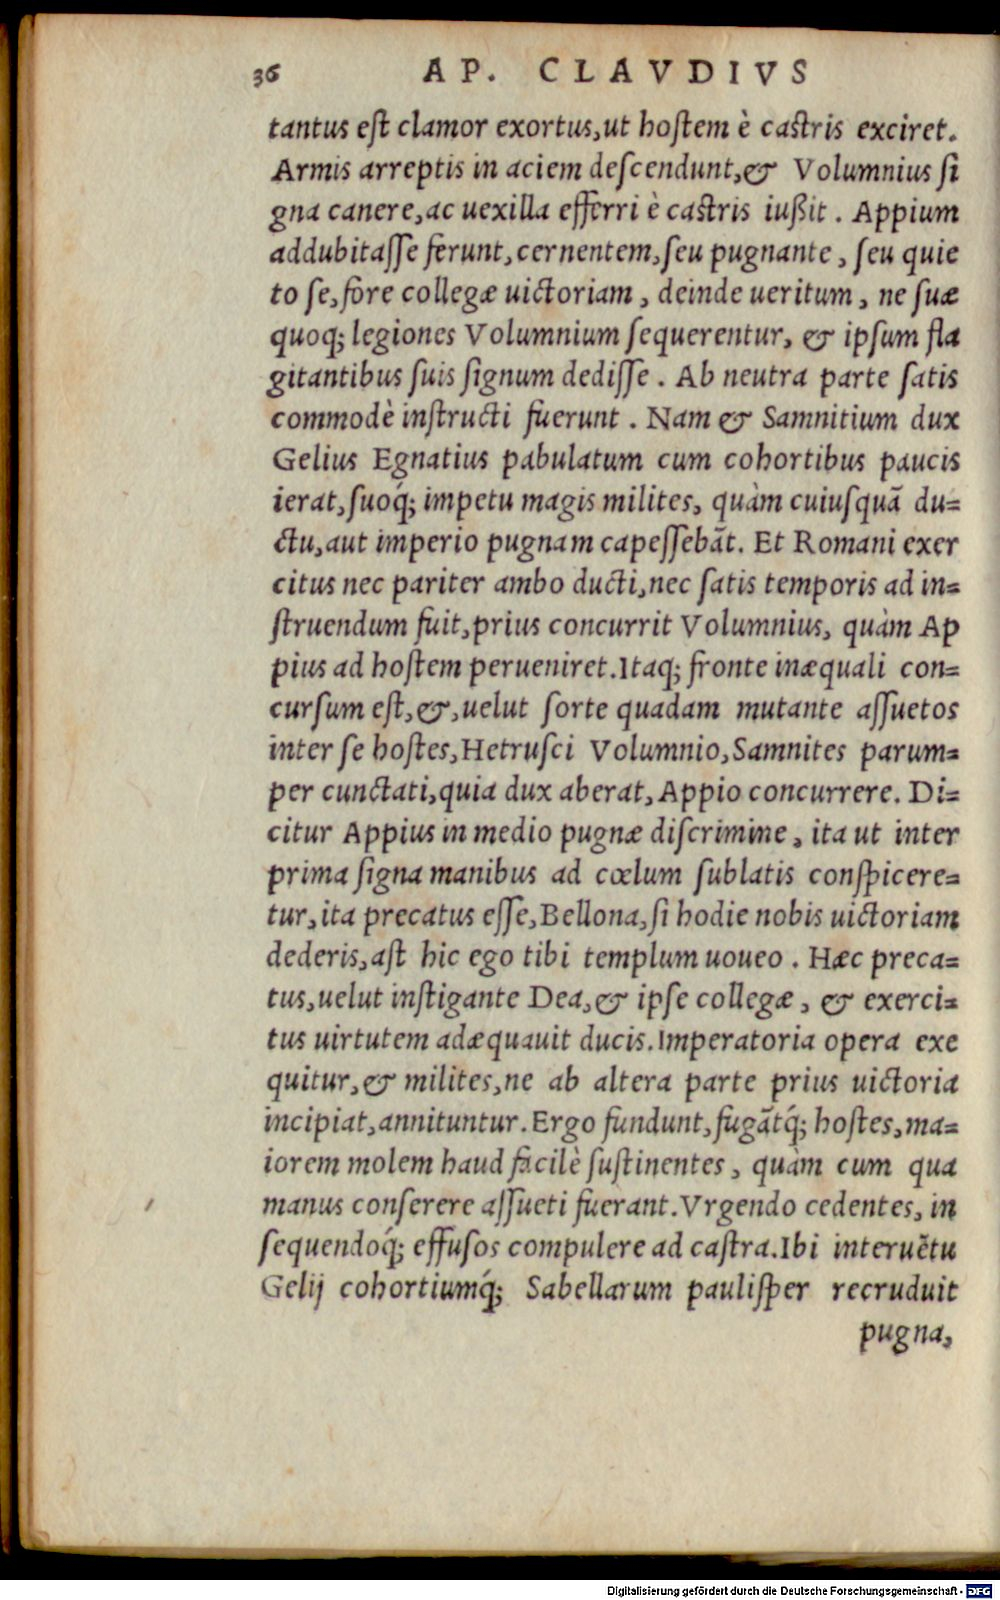 36 AP. CLAVDIVS
tantus eſt clamor exortus, ut hoſtem è caſtris exciret.
Armis arreptis in aciem deſcendunt, & Volumnius ſi
gna canere, ac uexilla efferri è caſtris iußit. Appium
addubitaſſe ferunt, cernentem, ſeu pugnante, ſeu quie
to ſe, fore collegæ uictoriam, deinde ueritum, ne ſuæ
quoq; legiones Volumnium ſequerentur, & ipſum fla
gitantibus ſuis ſignum dediſſe. Ab neutra parte ſatis
commodè inſtructi fuerunt. Nam & Samnitium dux
Gelius Egnatius pabulatum cum cohortibus paucis
ierat, ſuoq́; impetu magis milites, quàm cuiuſquã du=
ctu, aut imperio pugnam capeſſebãt. Et Romani exer
citus nec pariter ambo ducti, nec ſatis temporis ad in=
ſtruendum fuit, prius concurrit Volumnius, quàm Ap
pius ad hoſtem perueniret. Itaq; fronte inæquali con=
curſum eſt, &, uelut ſorte quadam mutante aſſuetos
inter ſe hoſtes, Hetruſci Volumnio, Samnites parum=
per cunctati, quia dux aberat, Appio concurrere. Di=
citur Appius in medio pugnæ diſcrimine, ita ut inter
prima ſigna manibus ad cœlum ſublatis conſpicere=
tur, ita precatus eſſe, Bellona, ſi hodie nobis uictoriam
dederis, aſt hic ego tibi templum uoueo. Hæc preca=
tus, uelut inſtigante Dea, & ipſe collegæ, & exerci=
tus uirtutem adæquauit ducis. Imperatoria opera exe
quitur, & milites, ne ab altera parte prius uictoria
incipiat, annituntur. Ergo fundunt, fugãtq́; hoſtes, ma=
iorem molem haud facilè ſuſtinentes, quàm cum qua
manus conſerere aſſueti fuerant. Vrgendo cedentes, in
ſequendoq́; effuſos compulere ad caſtra. Ibi interuẽtu
Gelij cohortiumq́; Sabellarum pauliſper recruduit
pugna,
Digitalisierung gefördert durch die Deutsche Forschungsgemeinschaft - DFG